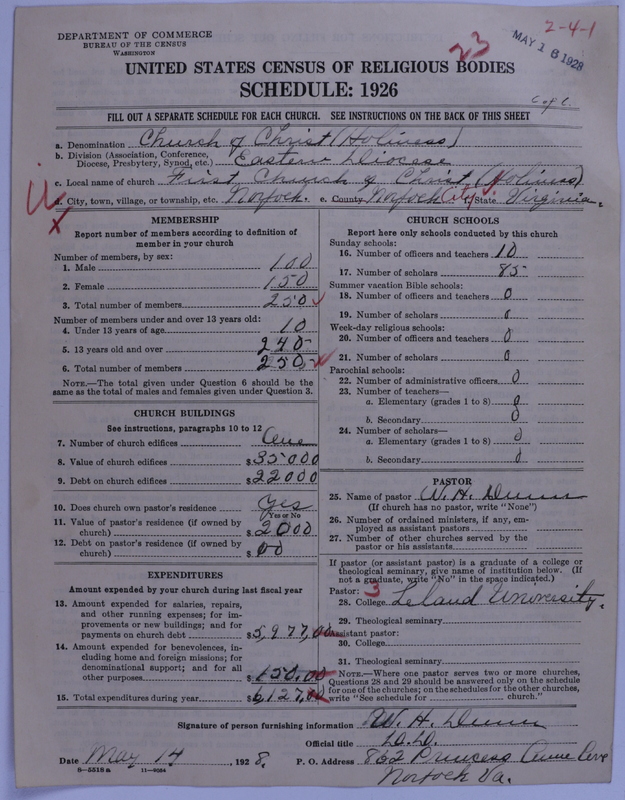 2-4-1
23
MAY 16 1928
DEPARTMENT OF COMMERCE
BUREAU OF THE CENSUS
WASHINGTON
UNITED STATES CENSUS OF RELIGIOUS BODIES
SCHEDULE: 1926
FILL OUT A SEPARATE SCHEDULE FOR EACH CHURCH. SEE INSTRUCTIONS ON THE BACK OF THIS SHEET
a. Denomination Church of Christ (Holiness)
b. Division (Association, Conference, Diocese, Presbytery, Synod, etc.) Eastern Diocese
c. Local name of church First Church of Christ (Holiness)
d. City, town, village, or township, etc. Norfock. e. County Norfock City State Virginia.
MEMBERSHIP
Report number of members according to definition of
member in your church
Number of members, by sex:
1. Male 100
2. Female 150
3. Total number of members 250
Number of members under and over 13 years old:
4. Under 13 years of age 10
5. 13 years old and over 240
6. Total number of members 250
NOTE.—The total given under Question 6 should be
same as the total of males and females given under Question 3.
CHURCH BUILDINGS
See instructions, paragraphs 10 to 12
7. Number of church edifices One
8. Value of church edifices $35000
9. Debt on church edifices $22000
10. Does church own pastor's residence Yes
Yes or No
11. Value of pastor's residence (if owned by
church) $2000
12. Debt on pastor's residence (if owned by
church) $00
EXPENDITURES
Amount expended by your church during last fiscal year
13. Amount expended for salaries, repairs,
and other running expenses; for im-
provements or new buildings; and for
payments on church debt $5,977,00
14. Amount expended for benevolences, in-
cluding home and foreign missions; for
denominational support; and for all
other purposes 150,00
15. Total expenditures during year $6,127,00
CHURCH SCHOOLS
Report here only schools conducted by this church
Sunday schools:
16. Number of officers and teachers 10
17. Number of scholars 85
Summer vacation Bible schools:
18. Number of officers and teachers 0
19. Number of scholars 0
Week-day religious schools:
20. Number of officers and teachers 0
21. Number of scholars 0
Parochial schools:
22. Number of administrative officers 0
23. Number of teachers—
a. Elementary (grades 1 to 8) 0
b. Secondary 0
24. Number of scholars—
a. Elementary (grades 1 to 8) 0
b. Secondary 0
PASTOR
25. Name of pastor W. H. Dunn
(If church has no pastor, write "None")
26. Number of ordained ministers, if any, em-
ployed as assistant pastors
27. Number of other churches served by the
pastor or his assistants
If pastor (or assistant pastor) is a graduate of a college or
theological seminary, give name of institution below. (If
not a graduate, write "No" in the space indicated.)
Pastor: 3
28. College Leland University.
29. Theological seminary
Assistant pastor:
30. College
31. Theological seminary
NOTE.—Where one pastor serves two or more churches,
Questions 28 and 29 should be answered only on the schedule
for one of the churches; on the schedules for the other churches,
write "See schedule for church."
Signature of person furnishing information W. H. Dunn
Official title D.D.
Date May 14, 1928. P. O. Address 862 Princess Anne Ave
Norfock Va.
8—5518 a 11—9034